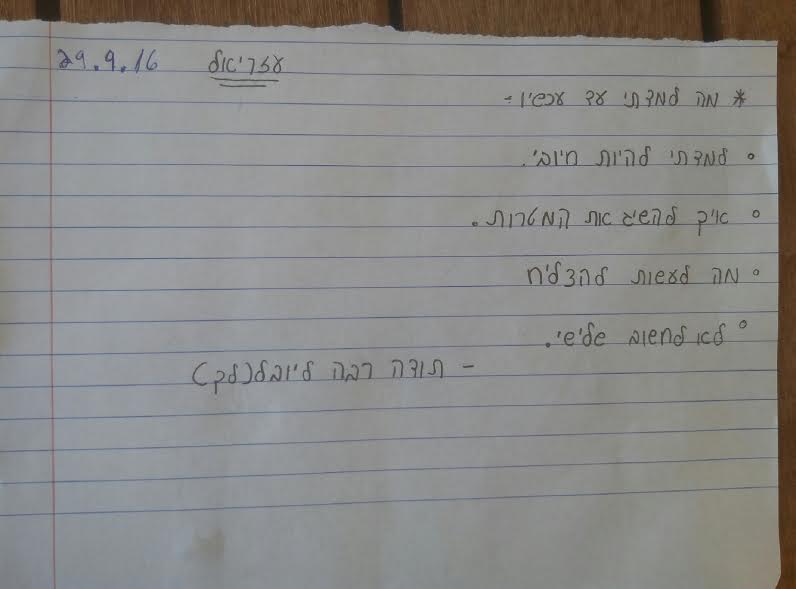 עזריאל 29.9.16
* מה למדתי עד עכשיו -
° למדתי להיות חיובי.
° איך להשיג את המטרות.
° מה לעשות להצליח
° לא לחשוב שלישי.
- תודה רבה ליובל(לק)